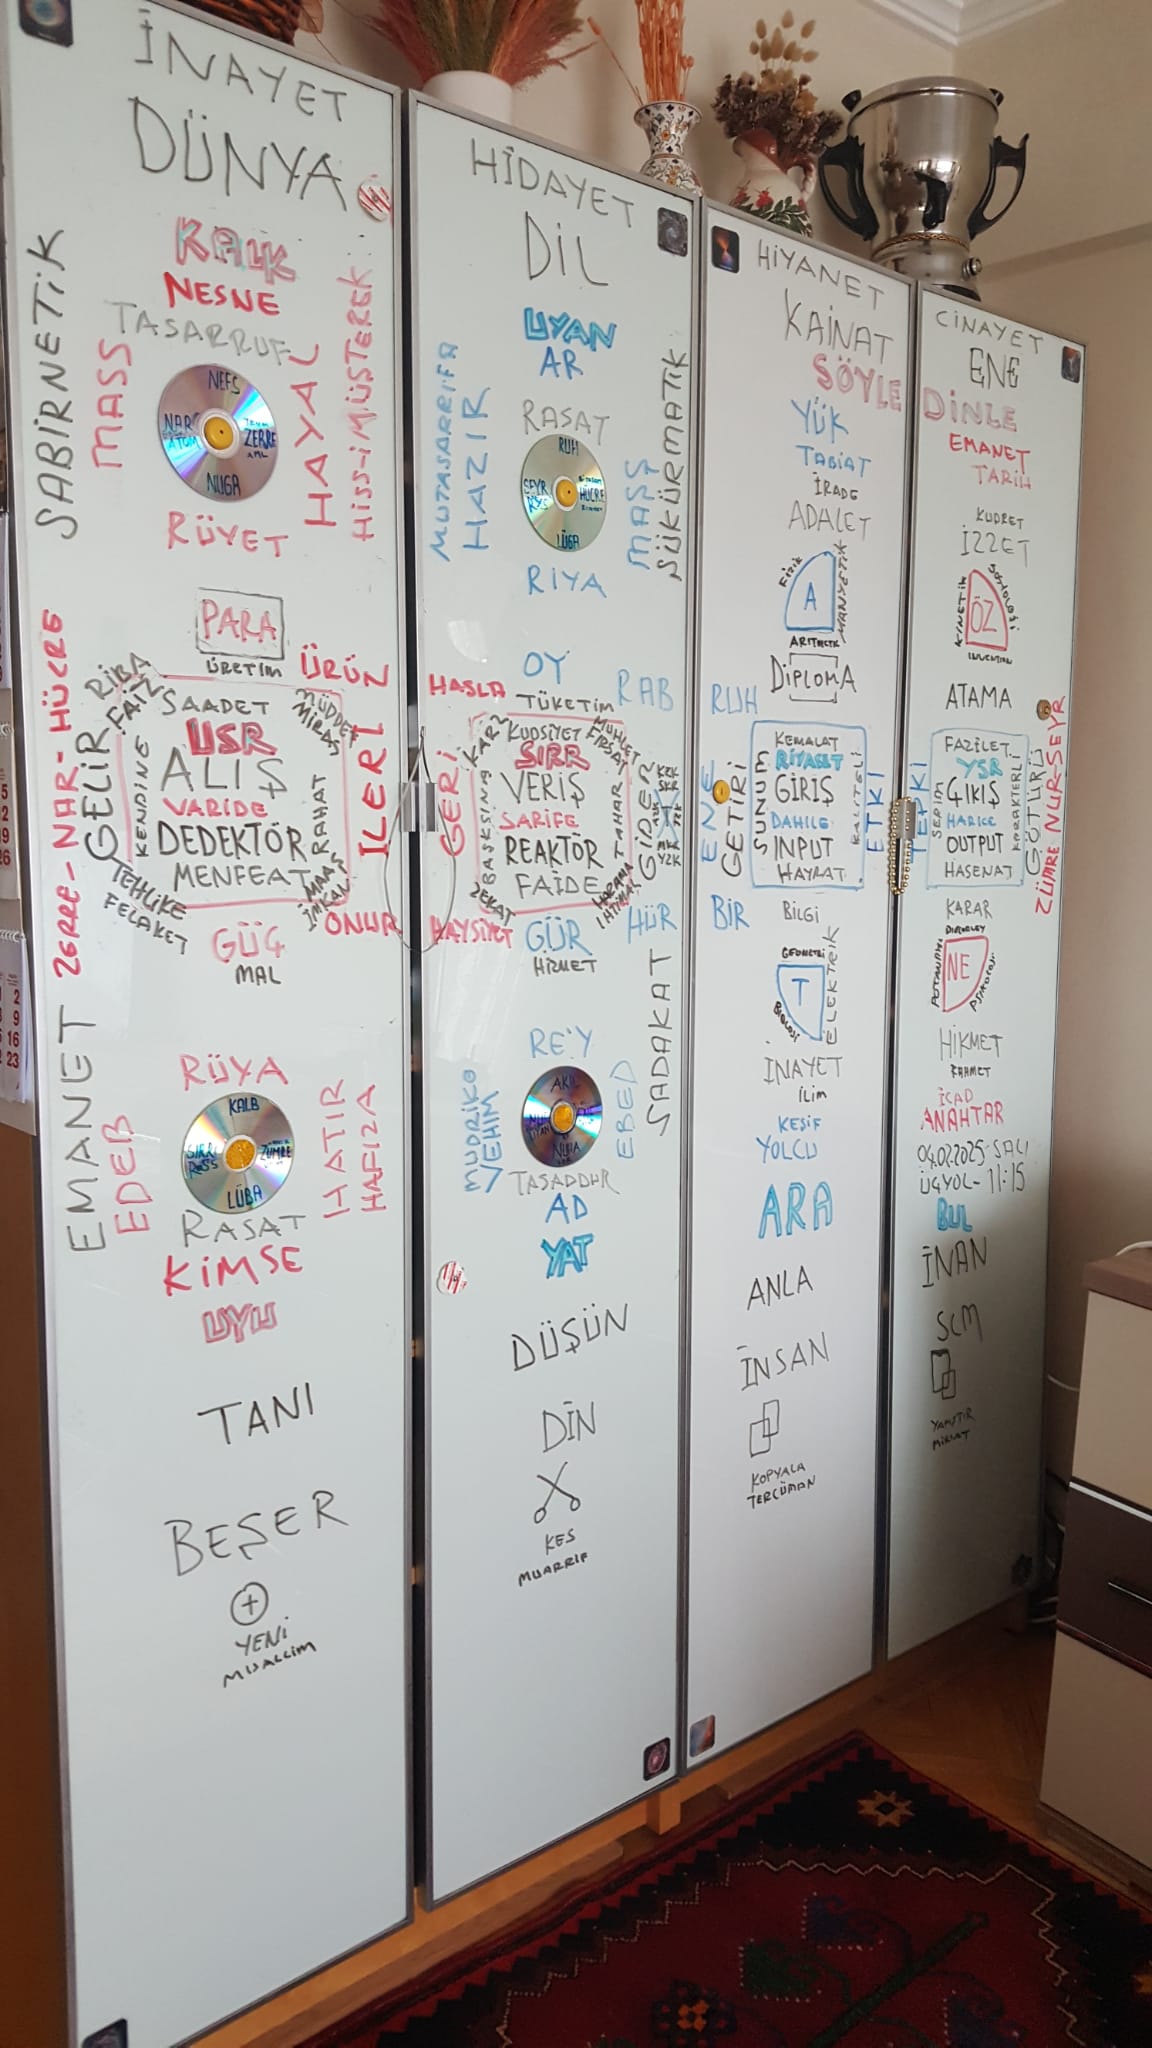 İNAYET
DÜNYA
KALK
NESNE
TASARRUF
SABİRNETİK
MASS
HAYAL
HİSS-İ MÜŞTEREK
NEFS
NAR
ATOM
ZERRE
NUGA
RÜYET
PARA
ÜRETİM
ÜRÜN
ZERRE-NAR-HÜCRE
RİBA
FAİZ
SAADET
MÜDDET
MİRAS
GELİR
KENDİNE
USR
ALIŞ
VARİDE
DEDEKTÖR
MENFEAT
RAHAT
İLERİ
MAAŞ
İMKAN
TEHLİKE
FELAKET
ONUR
GÜÇ
MAL
EMANET
EDEB
RÜYA
KALB
ZÜMRE
LÜBA
HATIR
HAFIZA
RASAT
KİMSE
UYU
TANI
BEŞER
YENİ
MUALLİM
HİDAYET
DİL
UYAN
AR
RASAT
MUTASARRIFA
HAZIR
RUH
SEYR
HÜCRE
LÜGA
MASS
ŞÜKÜRMATİK
RİYA
OY
HASLA
TÜKETİM
RAB
KARZ
KUDSİYET
MÜHLET
FIRSAT
SIRR
VERİŞ
SARİFE
REAKTÖR
FAİDE
GERİ
BAŞKSINA
TAHAR
GİDER
ZEKAT
HARAMA
İHTİMAL
HAYSİYET
GÜR
HİZMET
HÜR
SADAKAT
RE'Y
AKIL
MUDRİKO
VEHİM
EBED
TASADDUR
AD
YAT
DÜŞÜN
DİN
KES
MUARRİF
HİYANET
KAİNAT
SÖYLE
YÜK
TABİAT
İRADE
ADALET
FİZİK
A
MANYETİK
ARİTMETİK
DİPLOMA
RUH
ENE
GETİRİ
SUNUM
KEMALAT
RİYASET
GİRİŞ
DAHİLE
İNPUT
HAYRAT
KALİTELİ
ETKİ
BİR
BİLGİ
GEOMETRİ
T
ELEKTRİK
BİYOLOJİ
İNAYET
İLİM
KEŞİF
YOLCU
ARA
ANLA
İNSAN
KOPYALA
TERCÜMAN
CİNAYET
ENE
DİNLE
EMANET
TARİH
KUDRET
İZZET
KİNETİK
ÖZ
SOSYOLOJİ
INVENTION
ATAMA
TEPKİ
SERİM
FAZİLET
YSR
ÇIKIŞ
HARİCE
OUTPUT
HASENAT
KARAKTERLİ
GÖTÜRÜ
ZÜMRE-NUR-SEYR
KARAR
DISCOVERY
POTANSİYEL
NE
PSİKOLOJİ
HİKMET
RAHMET
İCAD
ANAHTAR
04.02.2025-SALI
ÜÇYOL-11:15
BUL
İNAN
SCM
YAPIŞTIR
MİRSAT